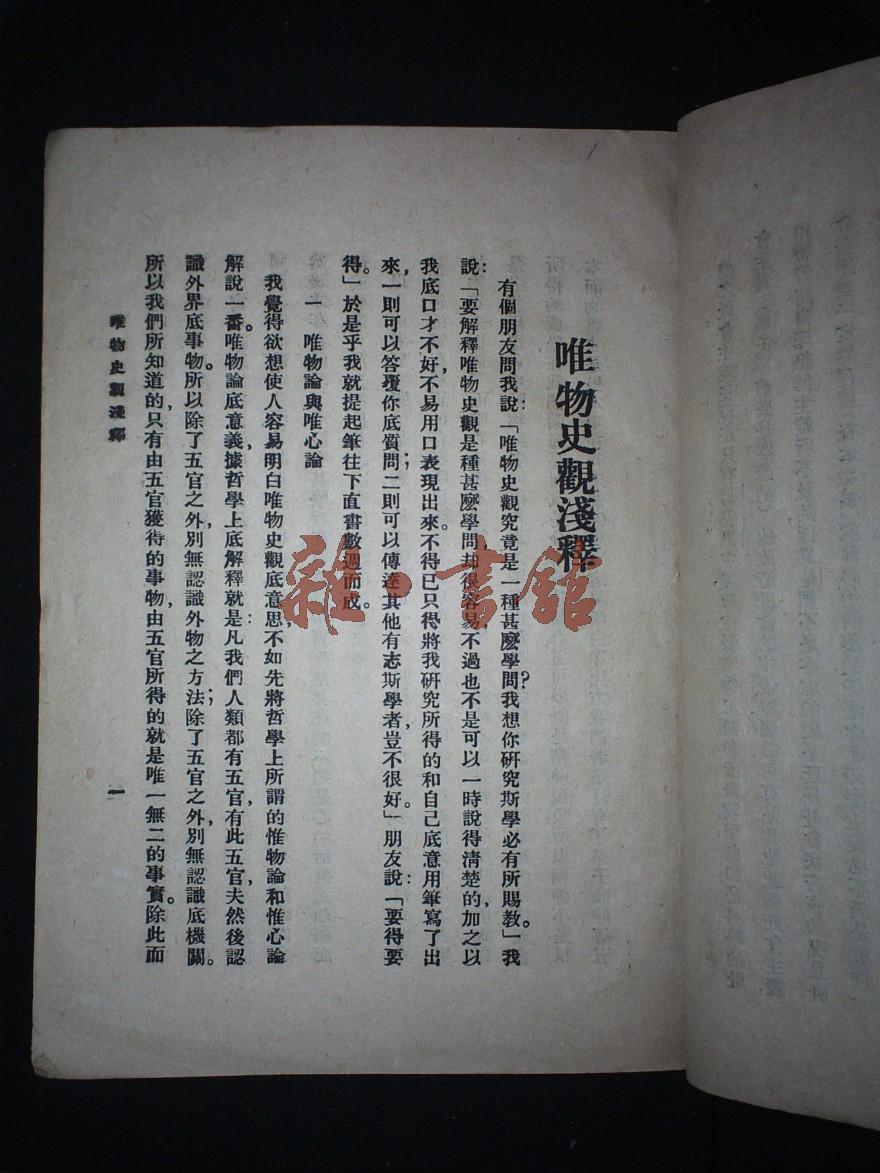 唯物史觀淺釋
有個朋友問我說「唯物史觀究竟是一種甚麽學問？我想你硏究斯學必有所賜教。」我
說：「要解釋唯物史觀是種甚麽學問，却很容易，不過也不是可以一時說得清楚的，加之以
我底口才不好，不易用口表現出來。不得已只得將我硏究所得的和自己底意用筆寫了出
來，一則可以答覆你底質問；二則可以傳達其他有志斯學者，豈不很好。」朋友說：「要得要
得。」於是乎我就提起筆往下直書數週而成。
一　唯物論與唯心論
我覺得欲想使人容易明白唯物史觀底意思，不如先將哲學上所謂的惟物論和惟心論
解說一番。唯物論底意義，據哲學上底解釋就是：凡我們人類都有五官，有此五官夫然後認
識外界底事物。所以除了五官之外，別無認識外物之方法；除了五官之外，別無認識底機關。
所以我們所知道的，只有由五官獲待的事物，由五官所得的就是唯一無二的事實。除此而
唯物史觀淺釋
一
雜·書館